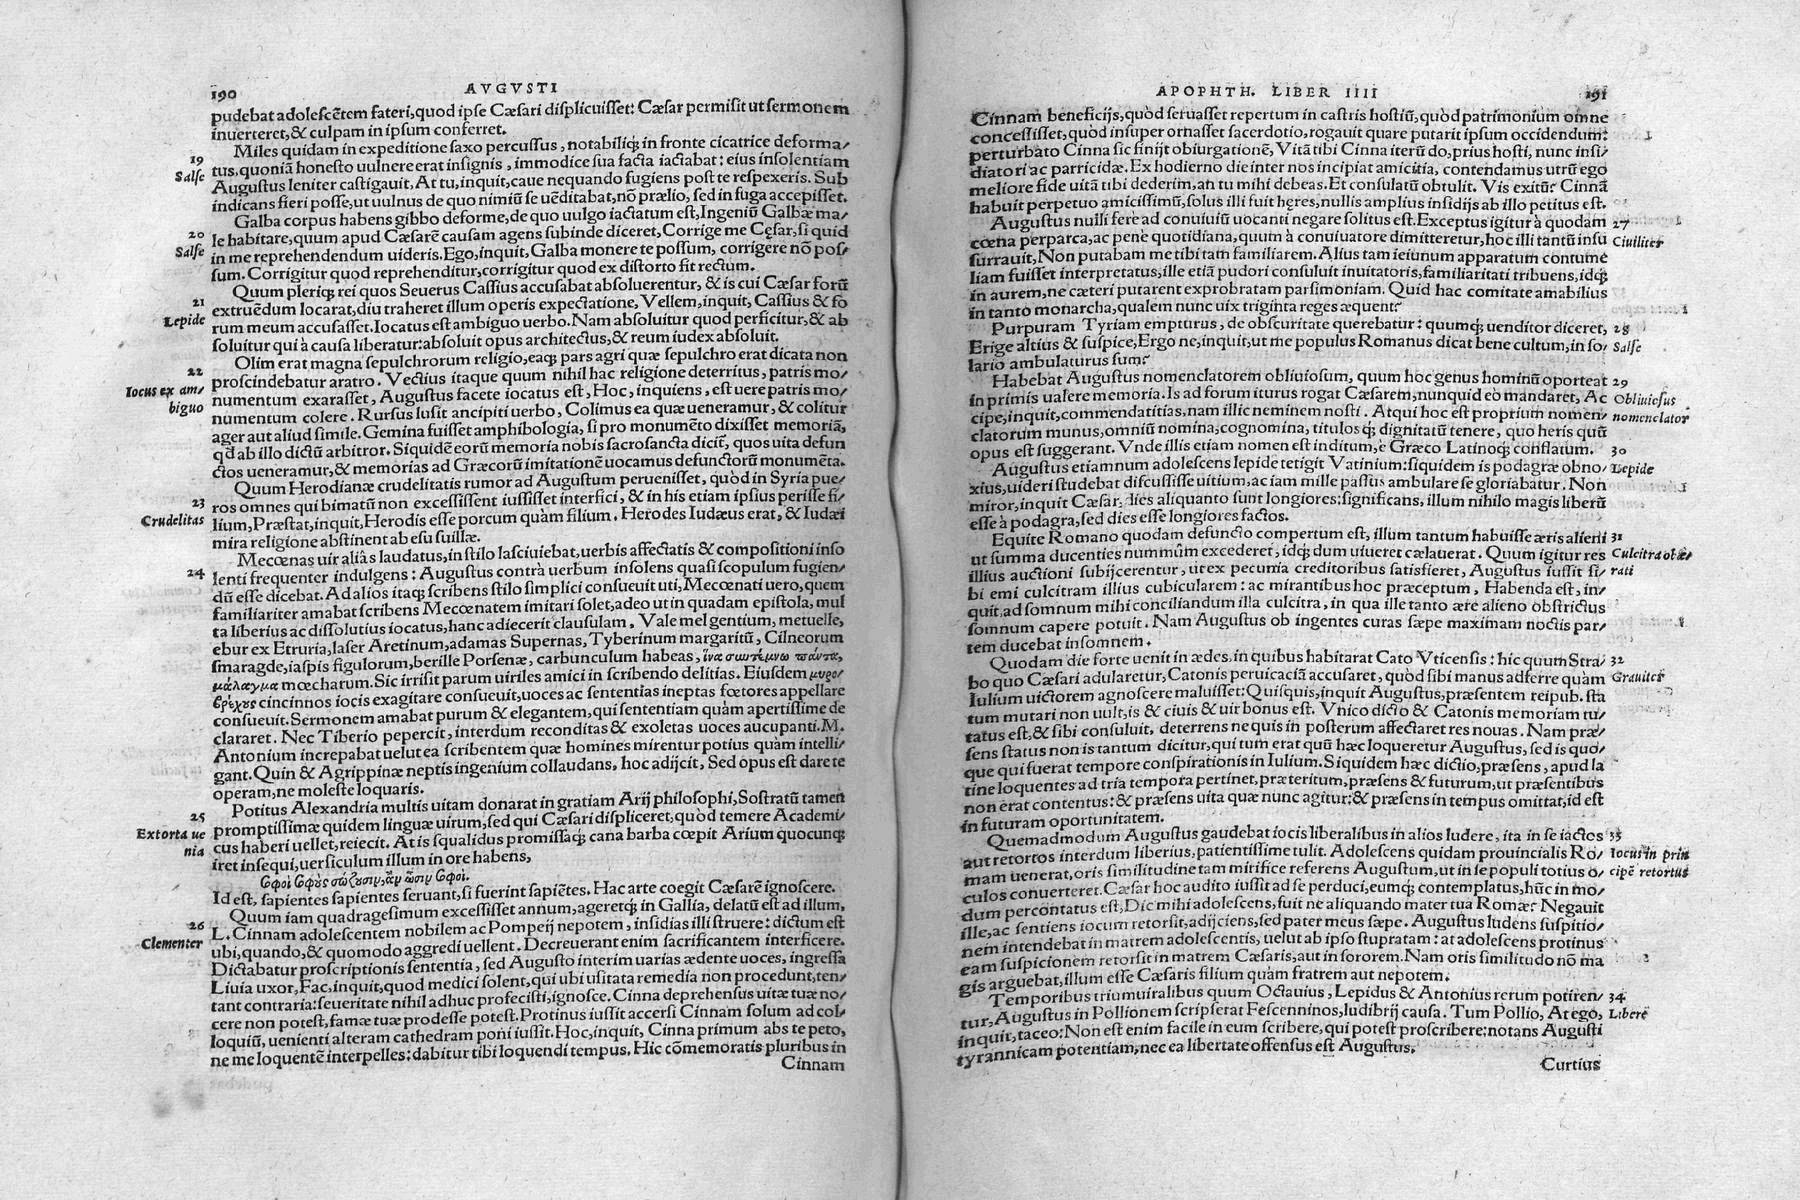 190
AVGVSTI
pudebat adolescẽtem fateri, quod ipse Cæsari displicuisset: Cæsar permisit ut sermonem
inuerteret, & culpam in ipsum conferret.
19
Salse
Miles quidam in expeditione saxo percussus, notabiliq́; in fronte cicatrice deforma/
tus, quoniã honesto uulnere erat insignis, immodice sua facta iactabat: eius insolentiam
Augustus leniter castigauit, At tu, inquit, caue nequando fugiens post te respexeris. Sub
indicans fieri posse, ut uulnus de quo nimiũ se uẽditabat, nõ prælio, sed in fuga accepisset.
20
Salse
Galba corpus habens gibbo deforme, de quo uulgo iactatum est, Ingeniũ Galbæ ma/
le habitare, quum apud Cæsarẽ causam agens subinde diceret, Corrige me Cęsar, si quid
in me reprehendendum uideris. Ego, inquit, Galba monere te possum, corrigere nõ pos/
sum. Corrigitur quod reprehenditur, corrigitur quod ex distorto fit rectum.
21
Lepide
Quum pleriq; rei quos Seuerus Cassius accusabat absoluerentur, & is cui Cæsar forũ
extruẽdum locarat, diu traheret illum operis expectatione, Vellem, inquit, Cassius & fo
rum meum accusasset. Iocatus est ambiguo uerbo. Nam absoluitur quod perficitur, & ab
soluitur qui à causa liberatur: absoluit opus architectus, & reum iudex absoluit.
22
Iocus ex am/
biguo
Olim erat magna sepulchrorum religio, eaq; pars agri quæ sepulchro erat dicata non
proscindebatur aratro. Vectius itaque quum nihil hac religione deterritus, patris mo/
numentum exarasset, Augustus facete iocatus est, Hoc, inquiens, est uere patris mo/
numentum colere. Rursus lusit ancipiti uerbo, Colimus ea quæ ueneramur, & colitur
ager aut aliud simile. Gemina fuisset amphibologia, si pro monumẽto dixisset memoriã,
qd ab illo dictũ arbitror. Siquidẽ eorũ memoria nobis sacrosancta dicit, quos uita defun
ctos ueneramur, & memorias ad Græcorũ imitationẽ uocamus defunctorũ monumẽta.
23
Crudelitas
Quum Herodianæ crudelitatis rumor ad Augustum peruenisset, quòd in Syria pue/
ros omnes qui bimatũ non excessissent iussisset interfici, & in his etiam ipsius perisse fi/
lium, Præstat, inquit, Herodis esse porcum quàm filium. Herodes Iudæus erat, & Iudæi
mira religione abstinent ab esu suillæ.
24
Mecœnas uir aliàs laudatus, in stilo lasciuiebat, uerbis affectatis & compositioni inso
lenti frequenter indulgens: Augustus contrà uerbum insolens quasi scopulum fugien/
dũ esse dicebat. Ad alios itaq; scribens stilo simplici consueuit uti, Mecœnati uero, quem
familiariter amabat scribens Mecœnatem imitari solet, adeo ut in quadam epistola, mul
ta liberius ac dissolutius iocatus, hanc adiecerit clausulam, Vale mel gentium, metuelle,
ebur ex Etruria, laser Aretinum, adamas Supernas, Tyberinum margaritũ, Cilneorum
smaragde, iaspis figulorum, berille Porsenæ, carbunculum habeas, ἵνα συντέμνω πάντα,
μάλαγμα mœcharum. Sic irrisit parum uiriles amici in scribendo delitias. Eiusdem μυρο/
βρέχους cincinnos iocis exagitare consueuit, uoces ac sententias ineptas fœtores appellare
consueuit. Sermonem amabat purum & elegantem, qui sententiam quàm apertissime de
clararet. Nec Tiberio pepercit, interdum reconditas & exoletas uoces aucupanti. M.
Antonium increpabat uelut ea scribentem quæ homines mirentur potius quàm intelli/
gant. Quin & Agrippinæ neptis ingenium collaudans, hoc adijcit, Sed opus est dare te
operam, ne moleste loquaris.
25
Extorta ue
nia
Potitus Alexandria multis uitam donarat in gratiam Arij philosophi, Sostratũ tamen
promptissimæ quidem linguæ uirum, sed qui Cæsari displiceret, quòd temere Academi/
cus haberi uellet, reiecit. At is squalidus promissaq́; cana barba cœpit Arium quocunq;
iret insequi, uersiculum illum in ore habens,
Σοφοὶ σοφοὺς σώζουσιν, ἂν ὦσιν σοφοί.
Id est, sapientes sapientes seruant, si fuerint sapiẽtes. Hac arte coegit Cæsarẽ ignoscere.
26
Clementer
Quum iam quadragesimum excessisset annum, ageretq́; in Gallia, delatũ est ad illum,
L. Cinnam adolescentem nobilem ac Pompeij nepotem, insidias illi struere: dictum est
ubi, quando, & quomodo aggredi uellent. Decreuerant enim sacrificantem interficere.
Dictabatur proscriptionis sententia, sed Augusto interim uarias ædente uoces, ingressa
Liuia uxor, Fac, inquit, quod medici solent, qui ubi usitata remedia non procedunt, ten/
tant contraria: seueritate nihil adhuc profecisti, ignosce. Cinna deprehensus uitæ tuæ no/
cere non potest, famæ tuæ prodesse potest. Protinus iussit accersi Cinnam solum ad col/
loquiũ, uenienti alteram cathedram poni iussit. Hoc, inquit, Cinna primum abs te peto,
ne me loquentẽ interpelles: dabitur tibi loquendi tempus. Hic cõmemoratis pluribus in
Cinnam
APOPHTH. LIBER IIII
191
Cinnam beneficijs, quòd seruasset repertum in castris hostiũ, quòd patrimonium omne
concessisset, quòd insuper ornasset sacerdotio, rogauit quare putarit ipsum occidendum:
perturbato Cinna sic finijt obiurgationẽ, Vitã tibi Cinna iterũ do, prius hosti, nunc insi/
diatori ac parricidæ. Ex hodierno die inter nos incipiat amicitia, contendamus utrũ ego
meliore fide uitã tibi dederim, an tu mihi debeas. Et consulatũ obtulit. Vis exitũ? Cinnã
habuit perpetuo amicissimũ, solus illi fuit hęres, nullis amplius insidijs ab illo petitus est.
Augustus nulli fere ad conuiuiũ uocanti negare solitus est. Exceptus igitur à quodam
27
Ciuiliter
cœna perparca, ac penè quotidiana, quum à conuiuatore dimitteretur, hoc illi tantũ insu
surrauit, Non putabam me tibi tam familiarem. Alius tam ieiunum apparatum contume
liam fuisset interpretatus, ille etiã pudori consuluit inuitatoris, familiaritati tribuens, idq́;
in aurem, ne cæteri putarent exprobratam parsimoniam. Quid hac comitate amabilius
in tanto monarcha, qualem nunc uix triginta reges æquent?
Purpuram Tyriam empturus, de obscuritate querebatur: quumq́; uenditor diceret,
28
Salse
Erige altius & suspice, Ergo ne, inquit, ut me populus Romanus dicat bene cultum, in so/
lario ambulaturus sum?
Habebat Augustus nomenclatorem obliuiosum, quum hoc genus hominũ oporteat
29
Obliuiosus
nomenclator
in primis ualere memoria. Is ad forum iturus rogat Cæsarem, nunquid eò mandaret, Ac
cipe, inquit, commendatitias, nam illic neminem nosti. Atqui hoc est proprium nomen/
clatorum munus, omniũ nomina, cognomina, titulos q́; dignitatũ tenere, quo heris quũ
opus est suggerant. Vnde illis etiam nomen est inditum, è Græco Latinoq́; conflatum.
30
Lepide
Augustus etiamnum adolescens lepide tetigit Vatinium: siquidem is podagræ obno/
xius, uideri studebat discussisse uitium, ac iam mille passus ambulare se gloriabatur. Non
miror, inquit Cæsar, dies aliquanto sunt longiores: significans, illum nihilo magis liberũ
esse à podagra, sed dies esse longiores factos.
Equite Romano quodam defuncto compertum est, illum tantum habuisse æris alieni
31
Culcitra obæ/
rati
ut summa ducenties nummûm excederet, idq́; dum uiueret cælauerat. Quum igitur res
illius auctioni subijcerentur, ut ex pecunia creditoribus satisfieret, Augustus iussit si/
bi emi culcitram illius cubicularem: ac mirantibus hoc præceptum, Habenda est, in/
quit, ad somnum mihi conciliandum illa culcitra, in qua ille tanto ære alieno obstrictus
somnum capere potuit. Nam Augustus ob ingentes curas sæpe maximam noctis par/
tem ducebat insomnem.
Quodam die forte uenit in ædes, in quibus habitarat Cato Vticensis: hic quum Stra/
32
Grauiter
bo quo Cæsari adularetur, Catonis peruicaciã accusaret, quòd sibi manus adferre quàm
Iulium uictorem agnoscere maluisset: Quisquis, inquit Augustus, præsentem reipub. sta
tum mutari non uult, is & ciuis & uir bonus est. Vnico dicto & Catonis memoriam tu/
tatus est, & sibi consuluit, deterrens ne quis in posterum affectaret res nouas. Nam præ/
sens status non is tantum dicitur, qui tum erat quũ hæc loqueretur Augustus, sed is quo/
que qui fuerat tempore conspirationis in Iulium. Siquidem hæc dictio, præsens, apud La
tine loquentes ad tria tempora pertinet, præteritum, præsens & futurum, ut præsentibus
non erat contentus: & præsens uita quæ nunc agitur: & præsens in tempus omittat, id est
in futuram oportunitatem.
Quemadmodum Augustus gaudebat iocis liberalibus in alios ludere, ita in se iactos
33
Iocus in prin
cipẽ retortus
aut retortos interdum liberius, patientissime tulit. Adolescens quidam prouincialis Ro/
mam uenerat, oris similitudine tam mirifice referens Augustum, ut in se populi totius o/
culos conuerteret. Cæsar hoc audito iussit ad se perduci, eumq́; contemplatus, hũc in mo/
dum percontatus est, Dic mihi adolescens, fuit ne aliquando mater tua Romæ? Negauit
ille, ac sentiens iocum retorsit, adijciens, sed pater meus sæpe. Augustus ludens suspitio/
nem intendebat in matrem adolescentis, uelut ab ipso stupratam: at adolescens protinus
eam suspicionem retorsit in matrem Cæsaris, aut in sororem. Nam oris similitudo nõ ma
gis arguebat, illum esse Cæsaris filium quàm fratrem aut nepotem.
Temporibus triumuiralibus quum Octauius, Lepidus & Antonius rerum potiren/
34
Liberè
tur, Augustus in Pollionem scripserat Fescenninos, ludibrij causa. Tum Pollio, At ego,
inquit, taceo: Non est enim facile in eum scribere, qui potest proscribere: notans Augusti
tyrannicam potentiam, nec ea libertate offensus est Augustus.
Curtius